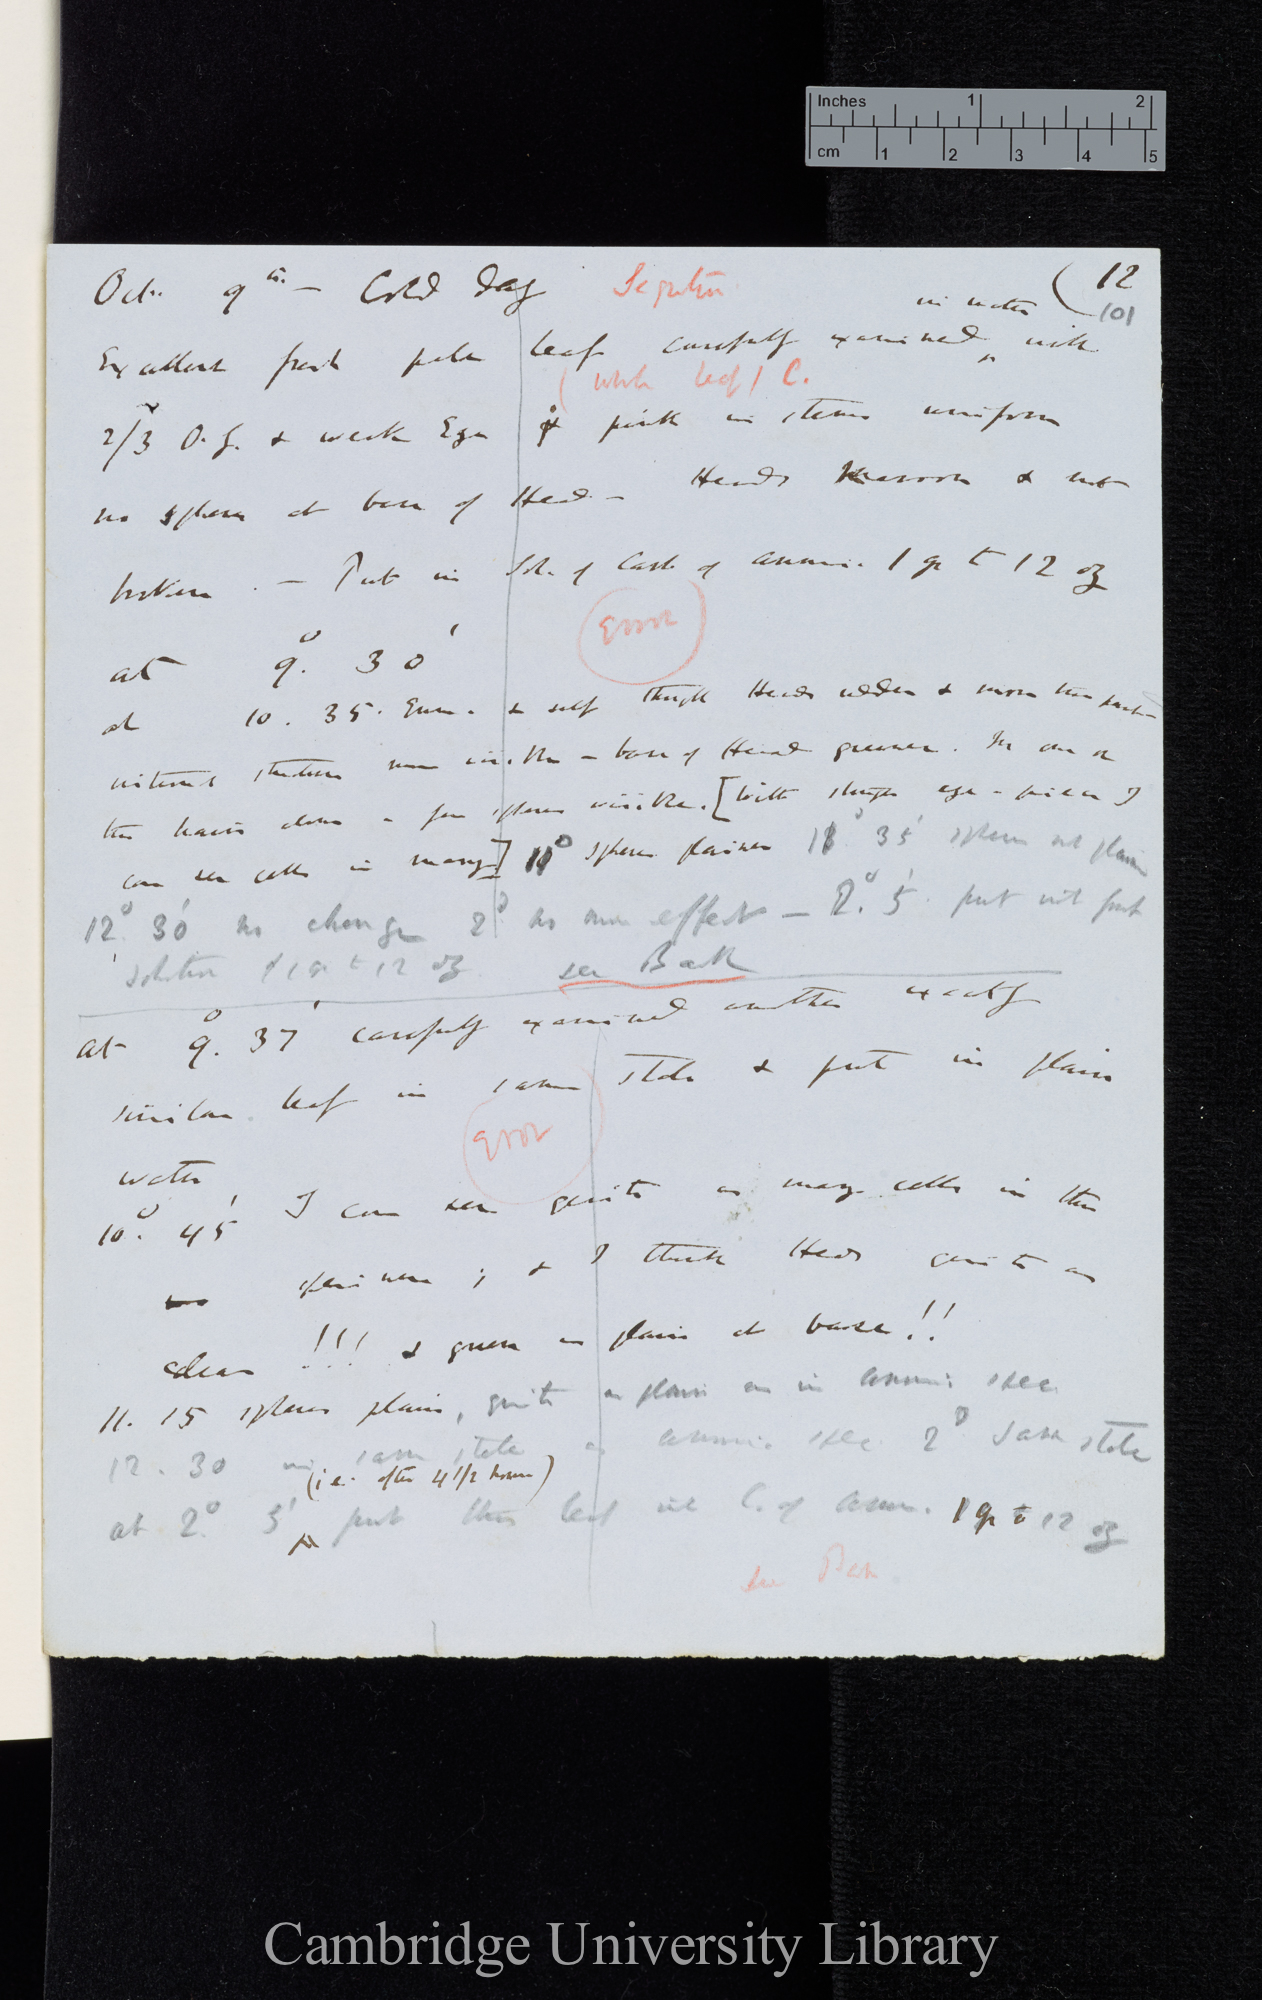 Inches 1 2
cm 1 2 3 4 5
Oct. 9th. — Cold day Segretion (12
101
in water
Excellent fresh pale leaf carefully examined ^ with
(whole leaf) C.
2/3 O.G. & weak Eye pink in stems uniform
no sphere at base of Head — Heads maroon & not
broken. — Put in Sol. of Carb of ammonia 1 gr to 12 oz
Error
at 9°. 30'
at 10. 35. & self though Heads redder & more
internal structure more visible — base of Head greener. In one or
two hairs alone a few spheres visible. [With stronger eye-piece I
can see cells in many] 11° spheres plainer 11° 35' spheres not plainer
12° 30' no change 2° no more effect — 2°. 5'. put into fresh
solution of 1 gr to 12 oz see Back
at 9°. 37' carefully examined another exactly
similar leaf in same state & put in plain
Error
water
10°. 45' I can see quite as many cells in this
specimen; & I think Heads quite as
clear !!! & green as plain at base!!
11. 15 spheres plain, quite as plain as in ammonia spec.
12. 30 in same state as ammonia spec. 2° same state
(i.e. after 4 1/2 hours)
at 2°. 5' ^ put this leaf into C. of Amm. 1 gr to 12 oz
see Back.
Cambridge University Library